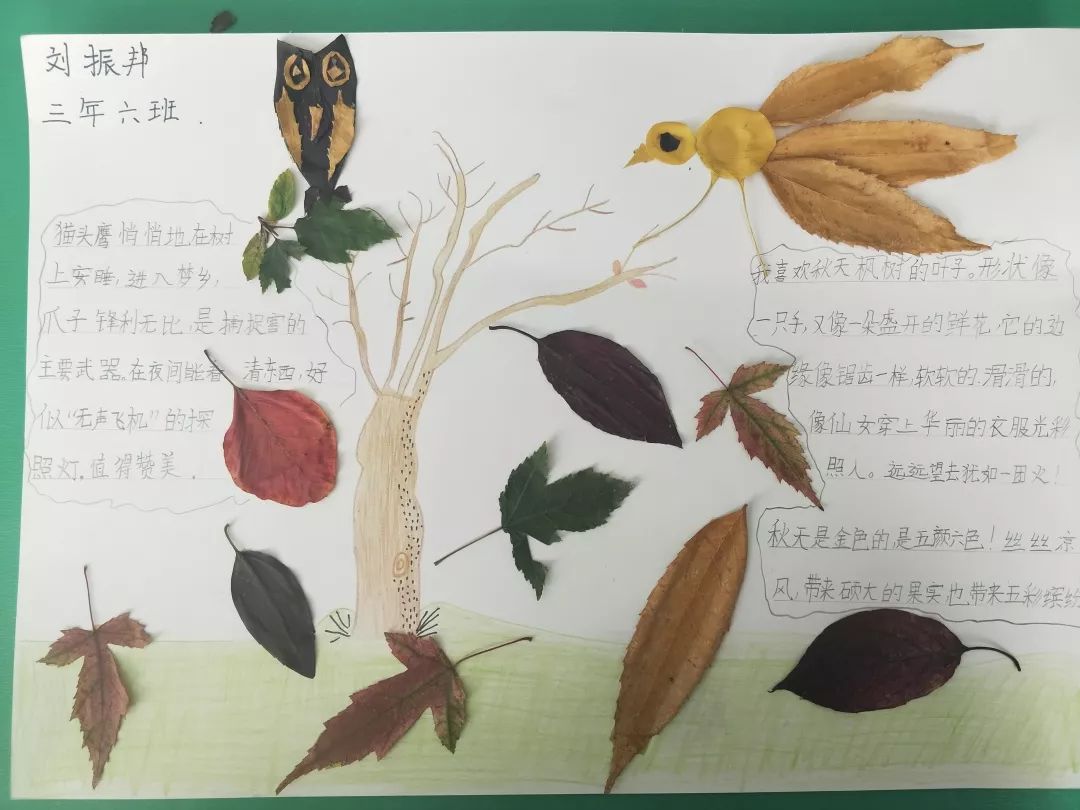 刘振邦
三年六班.
猫头鹰悄悄地在树
上安睡,进入梦乡,
爪子锋利无比,是捕捉害的
主要武器。在夜间能看 清东西,好
似“无声飞机”的探
照灯。值得赞美.
我喜欢秋天枫树的叶子。形状像
一只手,又像一朵盛开的鲜花,它的边
缘像锯齿一样,软软的.滑滑的,
像仙女穿上华丽的衣服光彩
照人。远远望去犹如一团火!
秋天是金色的,是五颜六色!丝丝凉
风,带来硕大的果实也带来五彩缤纷